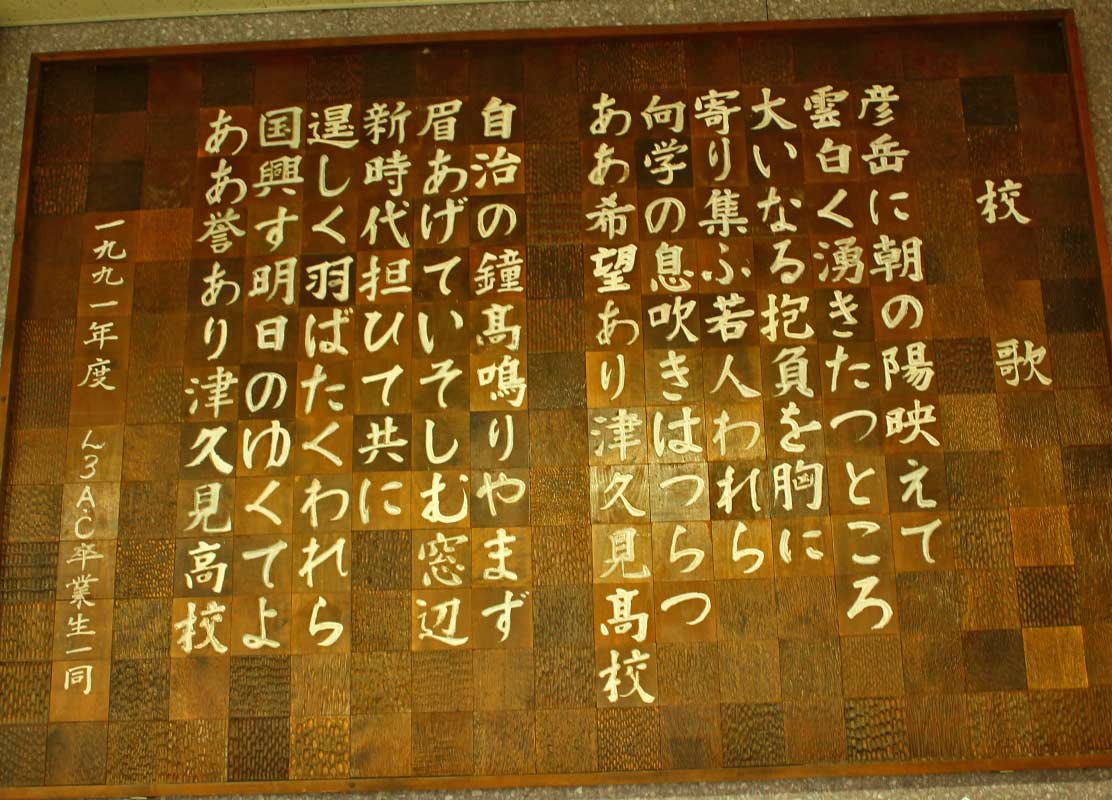 校歌
彦岳に朝の陽映えて
雲白く湧きたつところ
大いなる抱負を胸に
寄り集ふ若人われら
向学の息吹きはつらつ
ああ希望あり津久見髙校
自治の鐘髙鳴りやまず
眉あげていそしむ窓辺
新時代担ひて共に
逞しく羽ばたくわれら
国興す明日のゆくてよ
ああ誉あり津久見高校
一九九一年度 ん3A·C卒業生一同